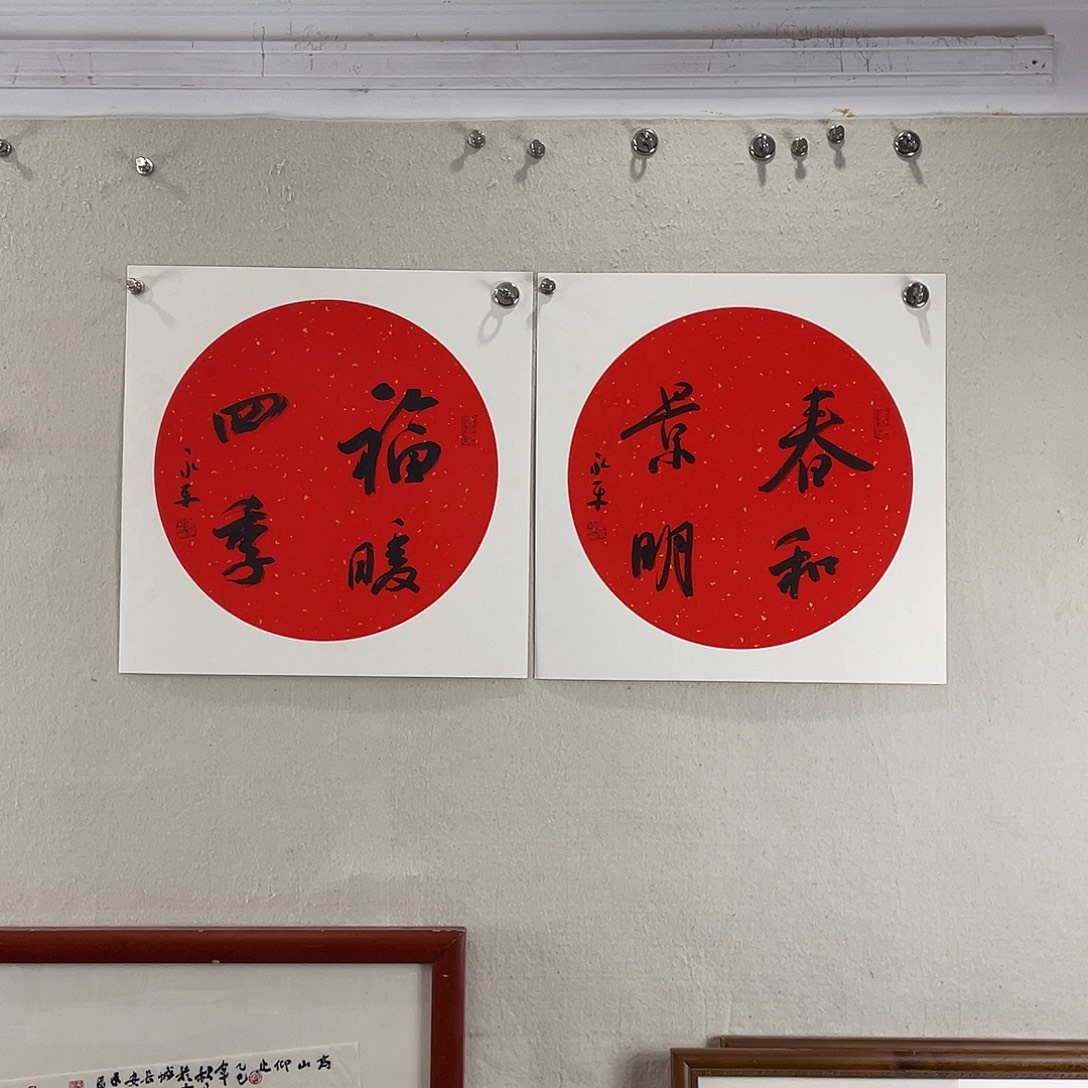 春和
景明
永平
福暖
四季
永平
高山仰止